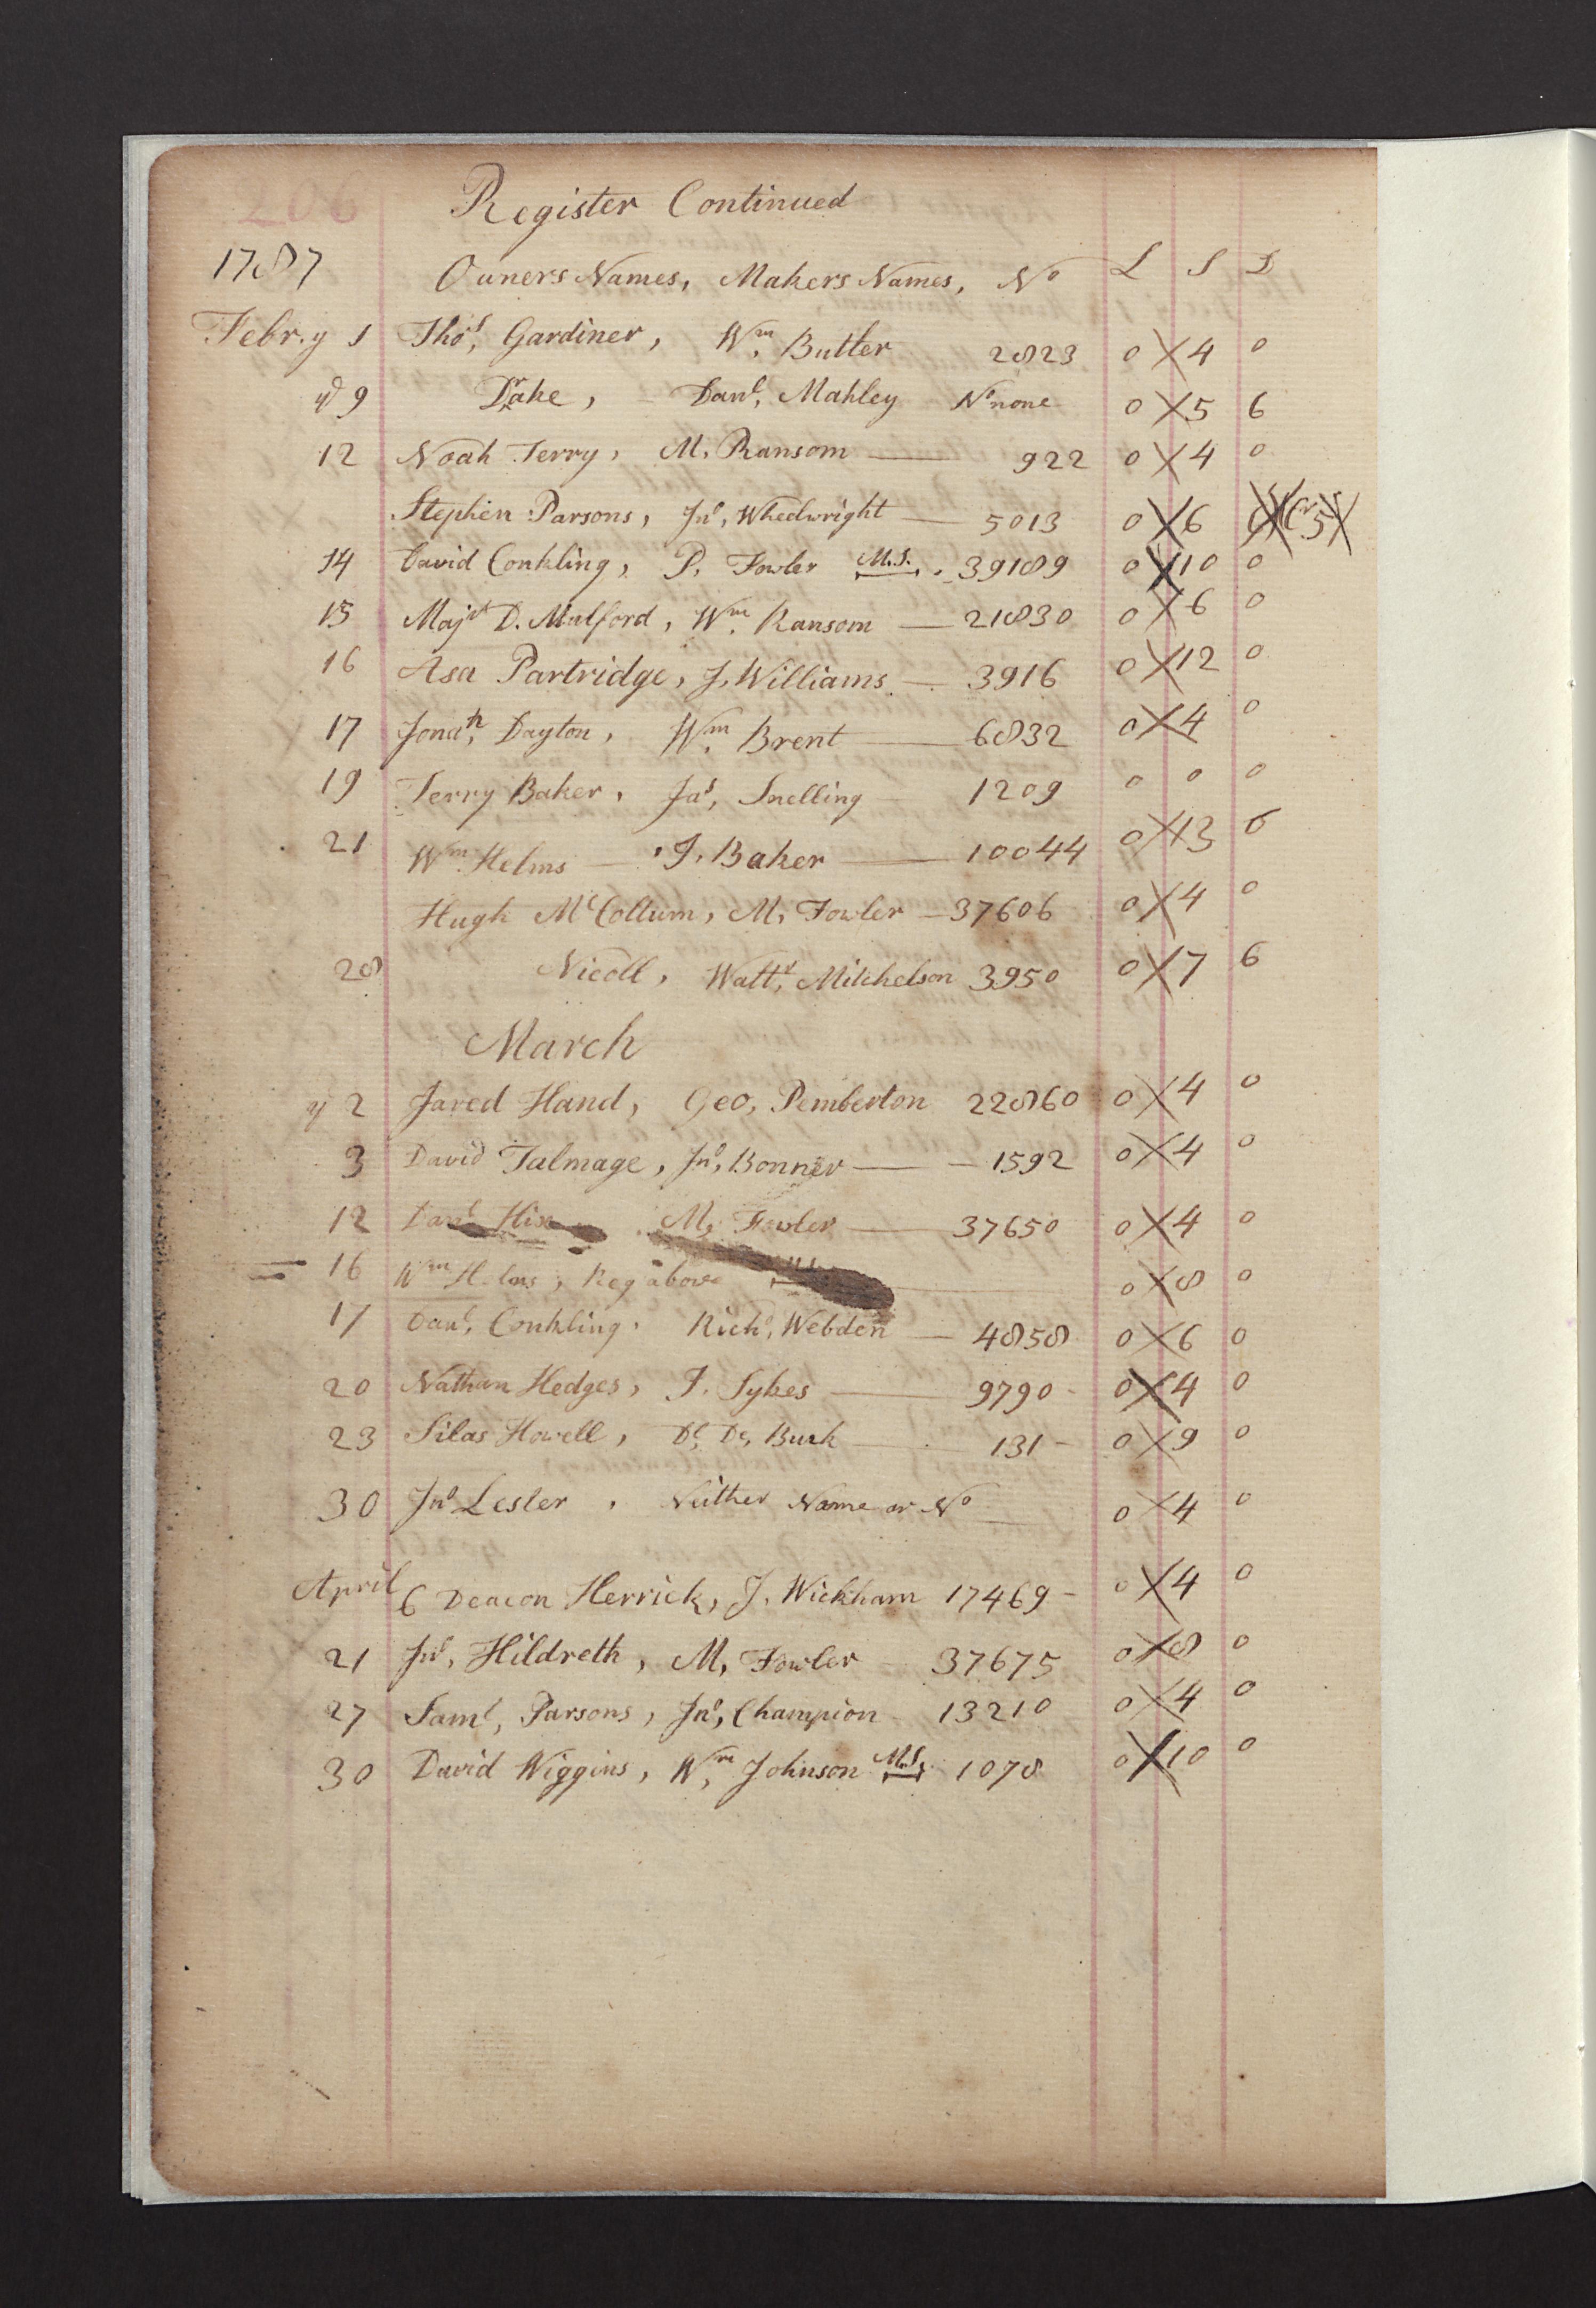 206
Register Continued
1787 Owners Names, Makers Names, No L S D
Febr.y 1 Thos, Gardiner, Wm, Butler 2823 0 4 0
9 Drake, Danl, Mahley No none 0 5 6
12 Noah Terry, M, Ransom — 922 0 4 0
Stephen Parsons, Jno, Wheelwright — 5013 0 6
14 David Conkling, P, Fowler M.S. 39189 0 10 0
15 Majr D. Mulford, Wm, Ransom — 21830 0 6 0
16 Asa Partridge, J, Williams — 3916 0 12 0
17 Jonath, Dayton, Wm, Brent — 6832 0 4 0
19 Terry Baker, Jas, Snelling 1209 0 0 0
21 Wm Helms — J, Baker — 10044 0 13 6
Hugh McCollum, M, Fowler — 37606 0 4 0
28 Nicoll, Wattr, Mitchelson 3950 0 7 6
March
y 2 Jared Hand, Geo, Pemberton 22860 0 4 0
3 David Talmage, Jno, Bonner — 1592 0 4 0
12 Danl Hix M, Fowler — 37650 0 4 0
16 Wm Helms, Reg above 0 8 0
17 Danl, Conkling, Richd, Webden — 4858 0 6 0
20 Nathan Hedges, J. Sykes — 9790 0 4 0
23 Silas Howell, De, Burk 131 0 9 0
30 Jno Lester, Neither Name or No 0 4 0
April 6 Deacon Herrick, J, Wickham 17469 0 4 0
21 Jno, Hildreth, M, Fowler 37675 0 8 0
27 Saml, Parsons, Jno, Champion 13210 0 4 0
30 David Wiggins, Wm, Johnson M.S. 1078 0 10 0